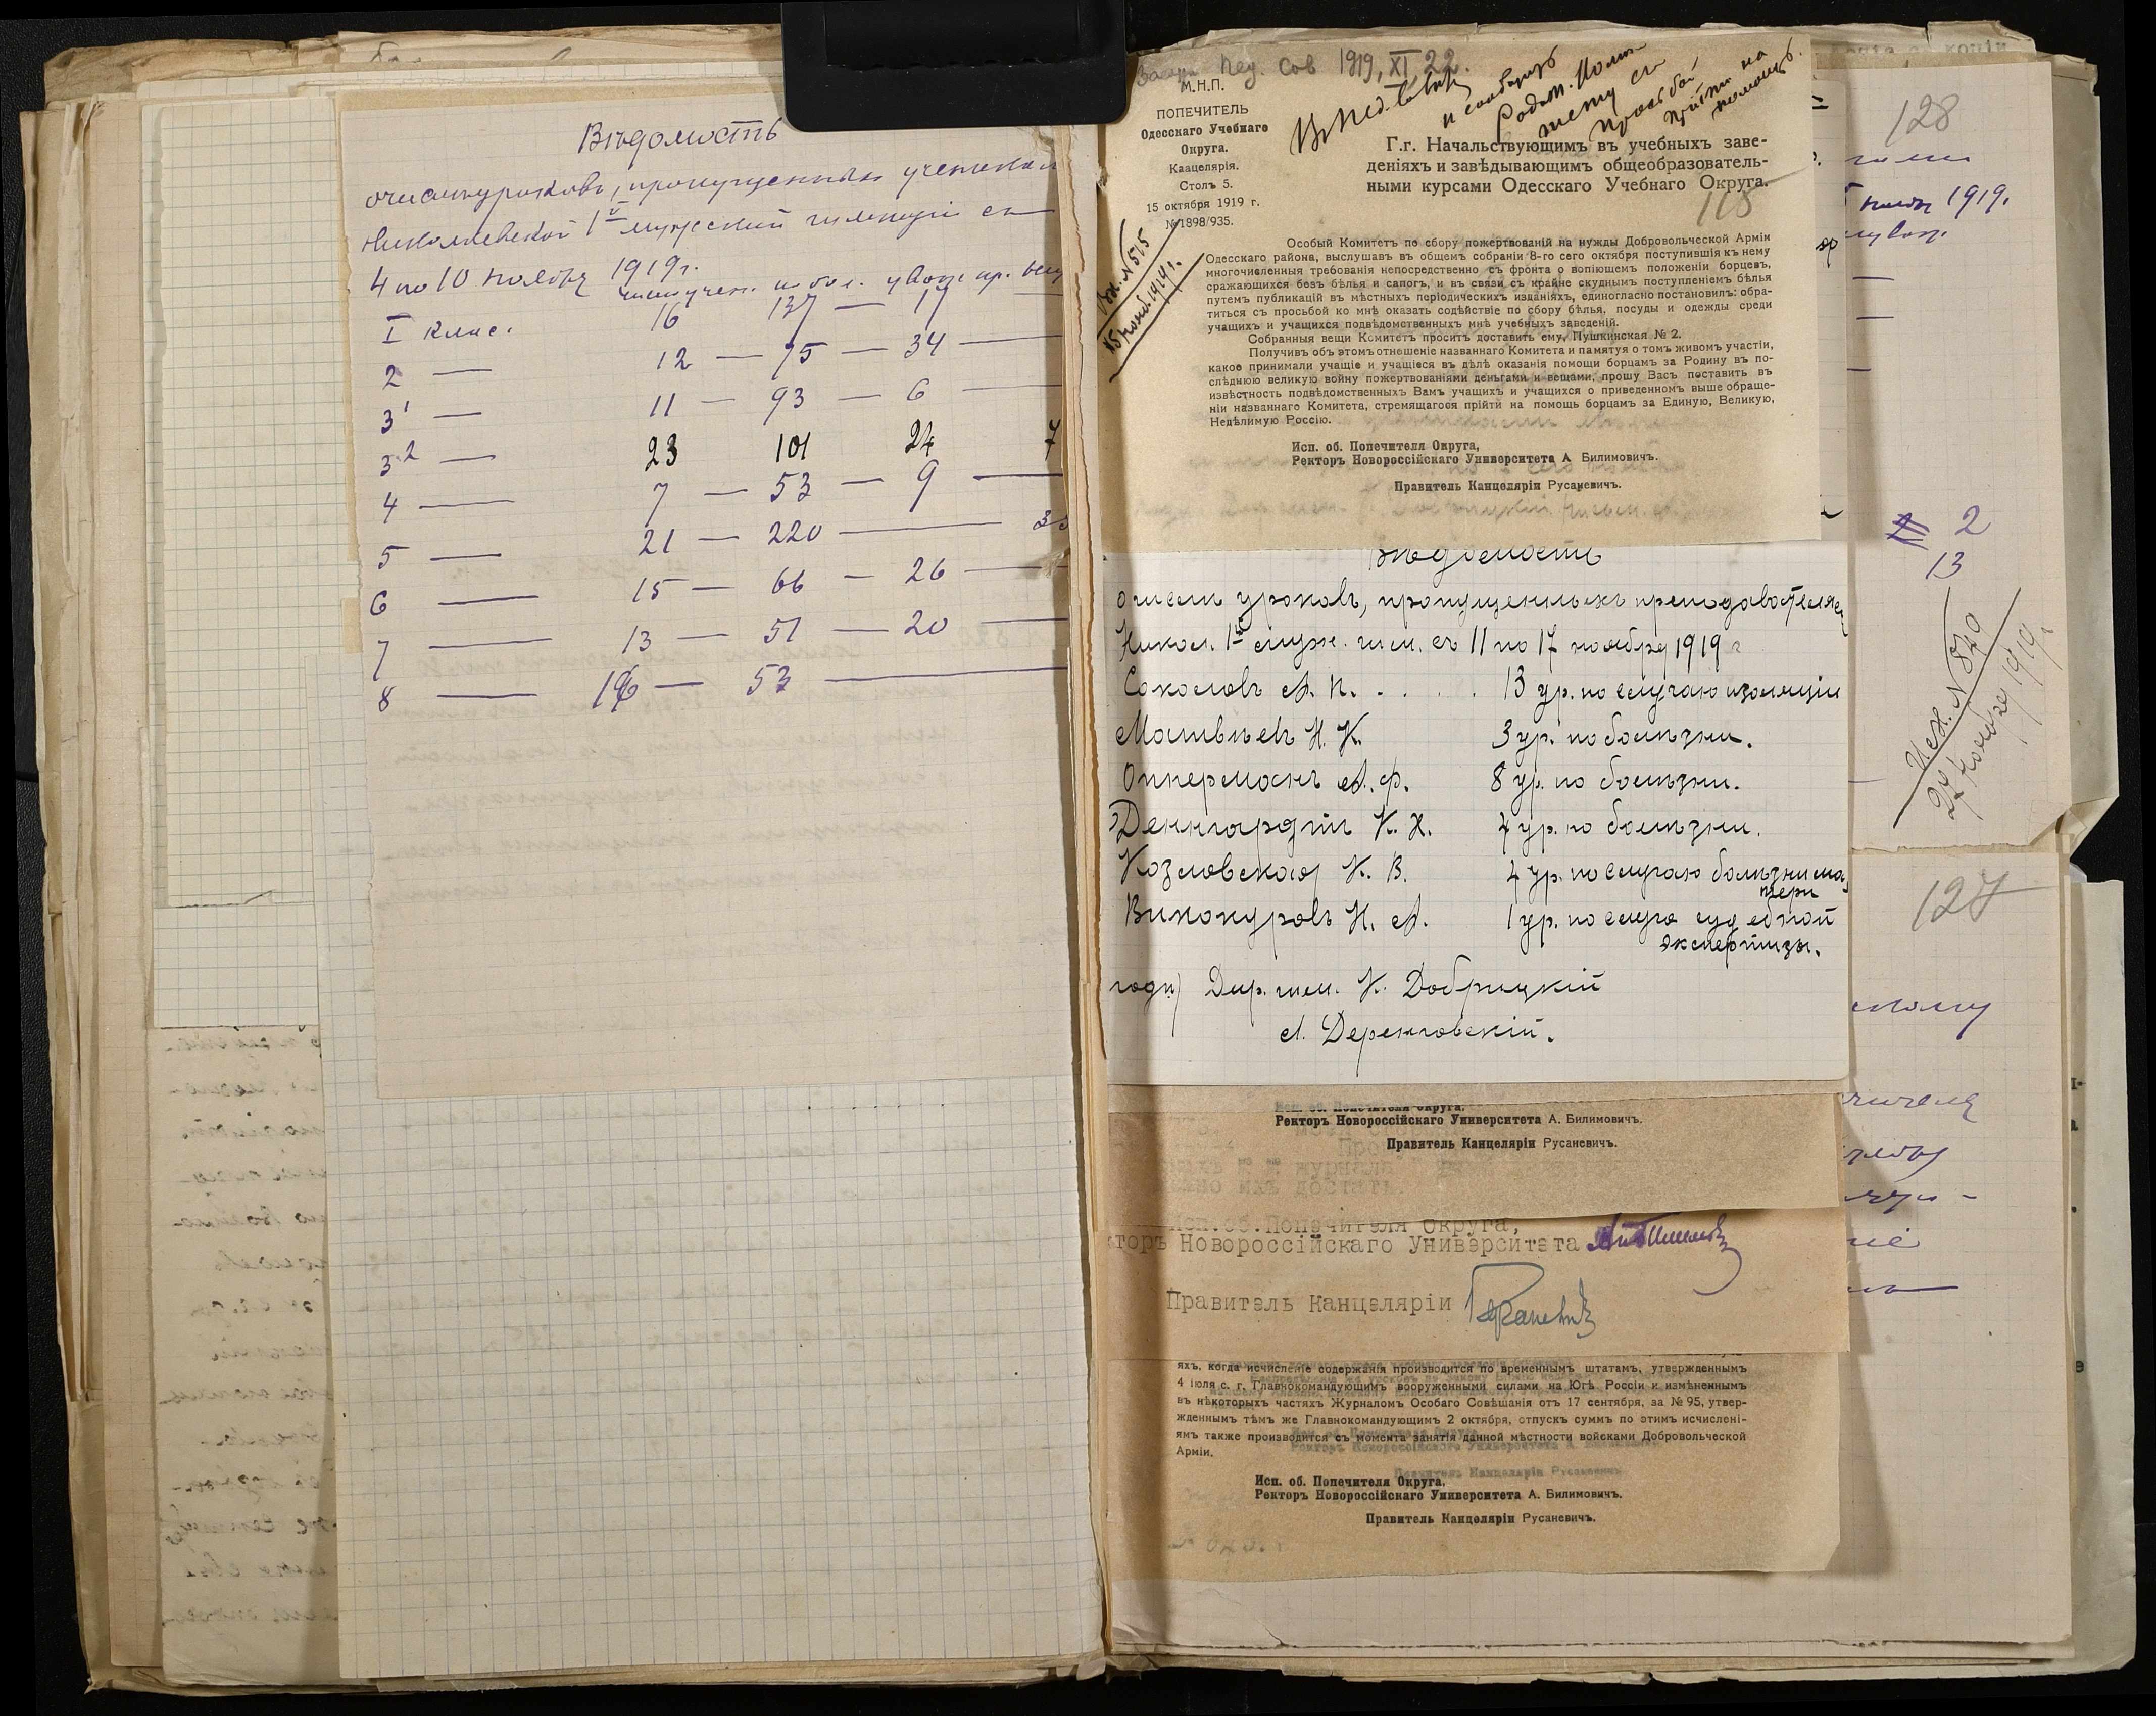 Вѣдомость
о числѣ уроковъ, пропущенныхъ ученикам
Николаевской 1й мужской гимназіи съ
4 по 10 ноября 1919 г.
число учен. по бол. уваж. пр.
I клас. 16 137 — 17
2 — 12 — 75 — 34 —
3¹ — 11 — 93 — 6 —
3² — 23 101 24 7
4 — 7 — 53 — 9 —
5 — 21 — 220 —
6 — 15 — 66 — 26 —
7 — 13 — 51 — 20 —
8 — 16 — 53 —
Засѣд. Пед. Сов 1919, XI, 22.
Въ Пед. Совѣтъ
и сообщить
Родит. Комит
просьбой
прійти на
помощь.
М.Н.П.
ПОПЕЧИТЕЛЬ
Одесскаго Учебнаго
Округа.
Канцелярія.
Столъ 5.
15 октября 1919 г.
№ 1898/935.
Вх. № 515
15 Нояб. 1919 г.
Г.г. Начальствующимъ въ учебныхъ заве-
деніяхъ и завѣдывающимъ общеобразователь-
ными курсами Одесскаго Учебнаго Округа.
118
Особый Комитетъ по сбору пожертвованій на нужды Добровольческой Арміи
Одесскаго района, выслушавъ въ общемъ собраніи 8-го сего октября поступившія къ нему
многочисленныя требованія непосредственно съ фронта о вопіющемъ положеніи борцевъ,
сражающихся безъ бѣлья и сапогъ, и въ связи съ крайне скуднымъ поступленіемъ бѣлья
путемъ публикацій въ мѣстныхъ періодическихъ изданіяхъ, единогласно постановилъ: обра-
титься съ просьбой ко мнѣ оказать содѣйствіе по сбору бѣлья, посуды и одежды среди
учащихъ и учащихся подвѣдомственныхъ мнѣ учебныхъ заведеній.
Собранныя вещи Комитетъ проситъ доставить ему, Пушкинская № 2.
Получивъ объ этомъ отношеніе названнаго Комитета и памятуя о томъ живомъ участіи,
какое принимали учащіе и учащіеся въ дѣлѣ оказанія помощи борцамъ за Родину въ по-
слѣднюю великую войну пожертвованіями деньгами и вещами, прошу Васъ поставить въ
извѣстность подвѣдомственныхъ Вамъ учащихъ и учащихся о приведенномъ выше обраще-
ніи названнаго Комитета, стремящагося прійти на помощь борцамъ за Единую, Великую,
Недѣлимую Россію.
Исп. об. Попечителя Округа,
Ректоръ Новороссійскаго Университета А Билимовичъ.
Правитель Канцеляріи Русаневичъ.
Вѣдомость
о числѣ уроковъ, пропущенныхъ преподавателям
Никол. 1й муж. гим. съ 11 по 17 ноября 1919 г
Соколовъ А. П. . . . . 13 ур. по случаю изоляціи
Матвѣевъ Н. К. 3 ур. по болѣзни.
Опперманъ А. Ф. 8 ур. по болѣзни.
Денгардтъ К. Х. 4 ур. по болѣзни.
Козловская К. В. 4 ур. по случаю болѣзни ма
тери
Винокуровъ Н. А. 1 ур. по случа судебной
экспертизы.
Дир. гим. К. Добрицкій
А. Деренговскій.
Исп. об. Попечителя Округа,
Ректоръ Новороссійскаго Университета А. Билимовичъ.
Правитель Канцеляріи Русаневичъ.
Исп.об.Попечителя Округа,
торъ Новороссійскаго Университета
Правитель Канцеляріи
яхъ, когда исчисленіе содержанія производится по временнымъ штатамъ, утвержденнымъ
4 іюля с. г. Главнокомандующимъ вооруженными силами на Югѣ Россіи и измѣненнымъ
въ нѣкоторыхъ частяхъ Журналомъ Особаго Совѣщанія отъ 17 сентября, за № 95, утвер-
жденнымъ тѣмъ же Главнокомандующимъ 2 октября, отпускъ суммъ по этимъ исчислені-
ямъ также производится съ момента занятія данной мѣстности войсками Добровольческой
Арміи.
Исп. об. Попечителя Округа,
Ректоръ Новороссійскаго Университета А. Билимовичъ.
Правитель Канцеляріи Русаневичъ.
128
1919.
2
13
Исх. № 840
27 Ноября 1919 г.
127